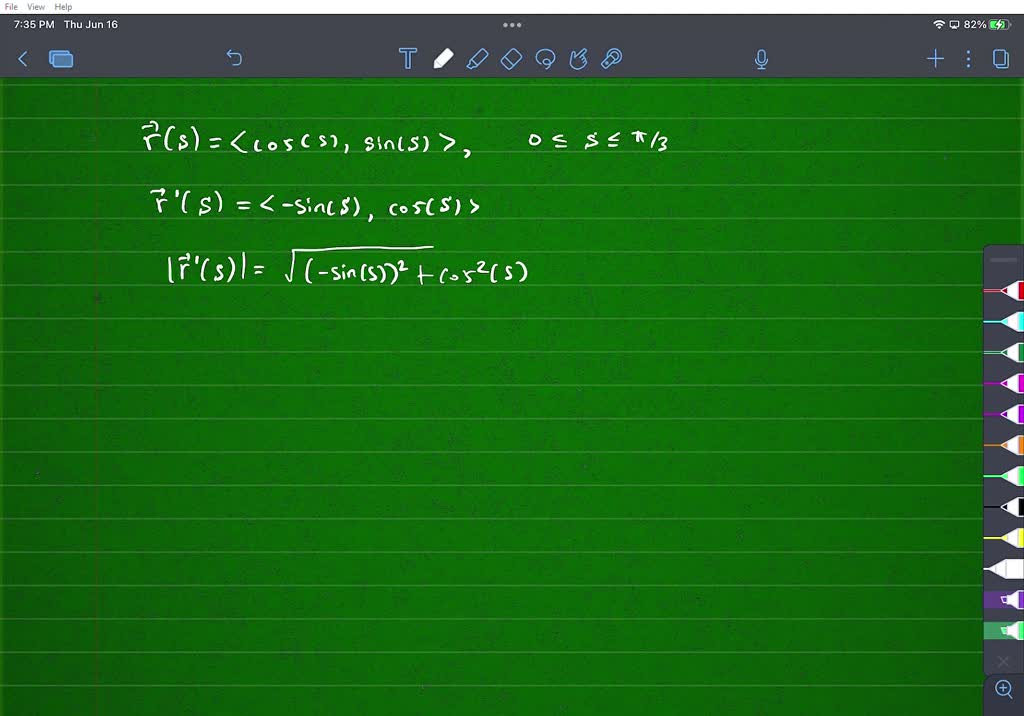 File View Help
7:35 PM Thu Jun 16 82%
r⃗(s) = <cos(s), sin(s)>, 0 ≤ s ≤ π/3
r⃗'(s) = <-sin(s), cos(s)>
|r⃗'(s)| = √(-sin(s))² + cos²(s)